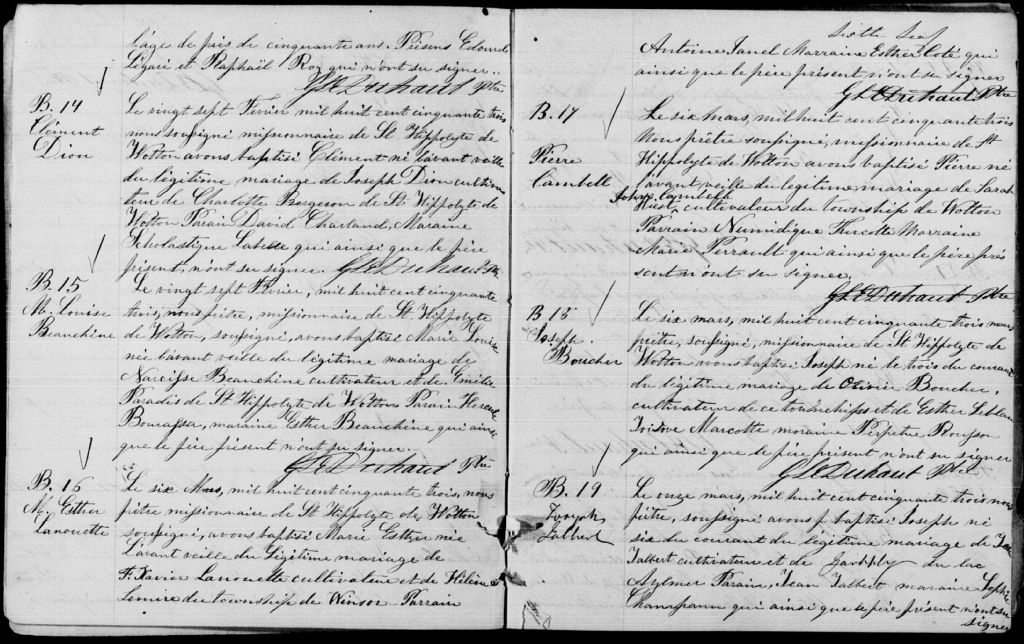 l'âge de près de cinquante ans. Présens Edouard
Légaré et Raphaël Roy qui n'ont su signer..
GLE Duhaut Ptre
B. 14
Clément
Dion
Le vingt sept Février mil huit cent cinquante trois
nous soussigné missionnaire de St Hippolyte de
Wotton avons baptisé Clément né l'avant veille
du légitime mariage de Joseph Dion cultiva
teur de Charlotte Bergeron de St. Hippolyte de
Wotton Parain David Charland, Maraine
Scholastique Labesse qui ainsi que le père
présent, n'ont su signer. GLE Duhaut Ptre
B. 15
M. Louise
Beauchêne
Le vingt sept Février, mil huit cent cinquante
trois, nous, prêtre, missionnaire de St. Hippolyte
de Wotton, soussigné, avons baptisé Marie Louise
née l'avant veille du légitime mariage de
Narcisse Beauchêne cultivateur et de Emilie
Paradis de St Hippolyte de Wotton Parain Hercule
Bourassa, maraine Esther Beauchêne qui ainsi
que le père présent n'ont su signer.
GLE Duhaut Ptre
B. 16
M. Esther
Lanouette
Le six Mars, mil huit cent cinquante trois, nous
prêtre missionnaire de St Hippolyte de Wotton
soussigné, avons baptisé Marie Esther née
l'avant veille du Légitime mariage de
F. Xavier Lanouette cultivateur et de Hélène
Lemire du township de Winsor Parrain
Sixth Leaf
Antoine Janel Marraine Esther Coté qui
ainsi que le père présent n'ont su signer
GLE Duhaut Ptre
B. 17
Pierre
Cambell
Le six mars, mil huit cent cinquante trois
Nous prêtre soussigné, missionnaire de St
Hippolyte de Wotton avons baptisé Pierre né
l'avant veille du légitime mariage de Sarah
John Cambell
cultivateur du township de Wotton
Parrain Numidique Turcotte Marraine
Marie Perrault qui ainsi que le père pré
sent n'ont su signer,
GLE Duhaut Ptre
B 18
Joseph.
Boucher
Le six mars, mil huit cent cinquante trois nous
prêtre, soussigné, missionnaire de St Hippolyte de
Wotton avons baptisé Joseph né le trois du courant
du légitime mariage de Olivier Boucher,
cultivateur de ce townchips et de Esther Leblanc
Marcotte maraine Perpetue
qui ainsi que le père présent n'ont su signer
GLE Duhaut Ptre
B. 19
Joseph
Jalbert
Le onze mars, mil huit cent cinquante trois nous
prêtre, soussigné avons baptisé Joseph né
six du courant du légitime mariage de
Jalbert cultivateur et de du lac
Aylmer Parain, Jean Jalbert maraine Sophie
qui ainsi que le père présent n'ont su
signer